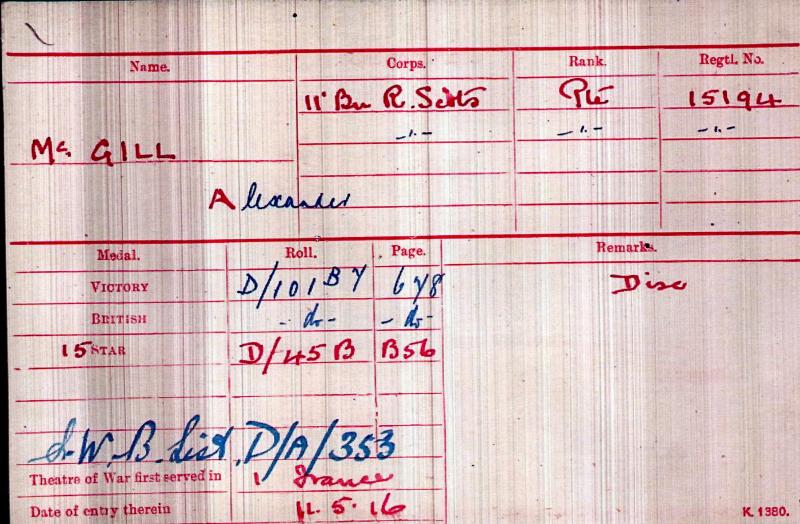 Name. Corps. Rank. Regtl. No.
11' Bn R. Scots Pte 15194
-"- -"- -"-
Mc. GILL
Alexander
Medal. Roll. Page. Remarks.
VICTORY D/101 B7 678 Disc
BRITISH - do - - do -
15 STAR D/45 B B56
S.W.B. List D/A/353
Theatre of War first served in 1 France
Date of entry therein 11.5.16
K. 1380.